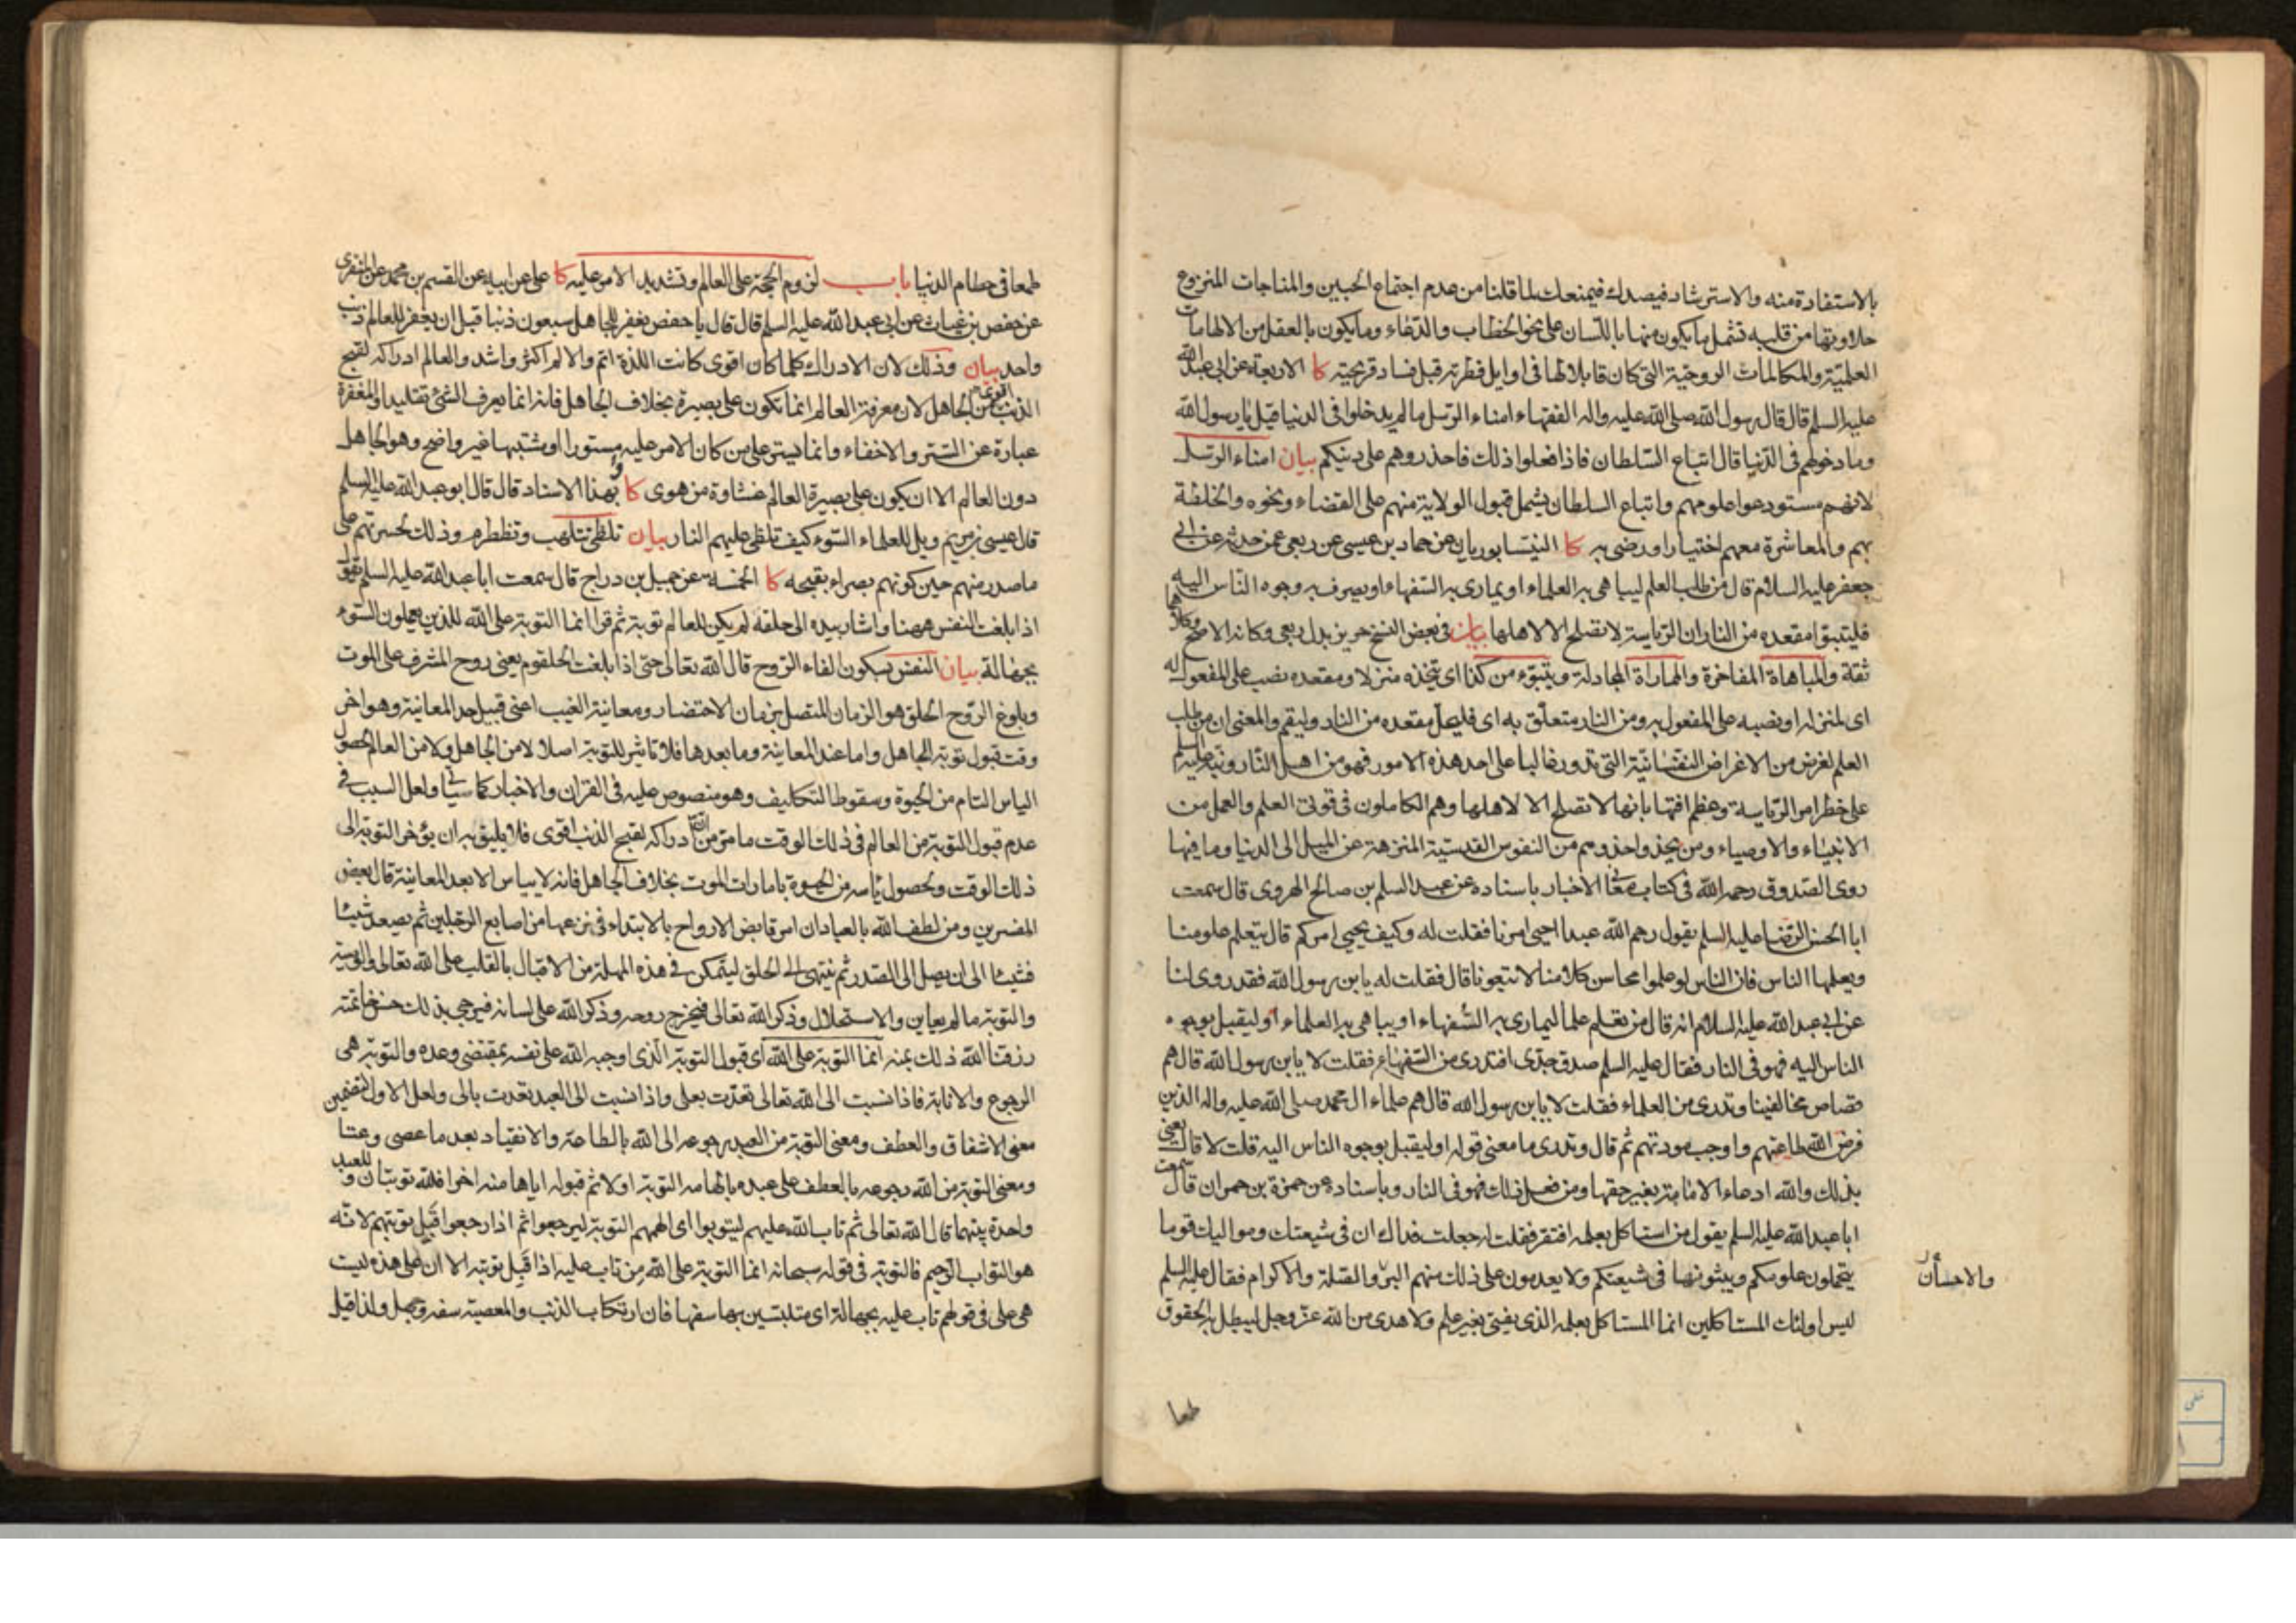 بالاستفادة منه والاسترشاد فيصدك فيمنعك لما قلنا من عدم اجتماع الحبين والمناجات المنزوع
حلاوتها من قلبه تشمل ما يكون منها باللسان على نحو الخطاب والدعاء وما يكون بالعقل من الالهامات
العلمية والمكالمات الروحية التي كان قابلا لها في اوايل فطرته قبل فساد قريحته كا الاربعة عن ابي عبد الله
عليه السلم قال قال رسول الله صلى الله عليه واله الفقهاء امناء الرسل ما لم يدخلوا في الدنيا قيل يا رسول الله
وما دخولهم في الدنيا قال اتباع السلطان فاذا فعلوا ذلك فاحذروهم على دينكم بيان امناء الرسل
لانهم مستودعوا علومهم واتباع السلطان يشمل قبول الولاية منهم على القضاء ونحوه والخلطة
بهم والمعاشرة معهم اختيارا ورضى به كا النيسابوريان عن حماد بن عيسى عن ربعي عمن حدثه عن ابي
جعفر عليه السلام قال من طلب العلم ليباهي به العلماء او يماري به السفهاء او يصرف به وجوه الناس اليه
فليتبوا مقعده من النار ان الرياسة لا تصلح الا لاهلها بيان في بعض النسخ حريز بدل ربعي وكانه الاصح وكلاهما
ثقة والمباهاة المفاخرة والمماراة المجادلة ويتبوء من كذا اي يتخذه منزلا ومقعده نصب على المفعول له
اي لمنزله او نصبه على المفعول به ومن النار متعلق به اي فليجعل مقعده من النار وليقم والمعنى ان من طلب
العلم لغرض من الاغراض النفسانية التي تدور غالبا على احد هذه الامور فهو من اهل النار ونبه عليه السلم
على خطر امر الرياسة وعظم افتها بانها لا تصلح الا لاهلها وهم الكاملون في قوتي العلم والعمل من
الانبياء والاوصياء ومن يحذو حذوهم من النفوس القدسية المنزهة عن الميل الى الدنيا وما فيها
روى الصدوق رحمه الله في كتاب معاني الاخبار باسناده عن عبد السلم بن صالح الهروي قال سمعت
ابا الحسن الرضا عليه السلم يقول رحم الله عبدا احيى امرنا فقلت له وكيف يحيي امركم قال يتعلم علومنا
ويعلمها الناس فان الناس لو علموا محاسن كلامنا لاتبعونا قال فقلت له يا بن رسول الله فقد روى لنا
عن ابي عبد الله عليه السلام انه قال من تعلم علما ليماري به السفهاء او يباهي به العلماء او ليقبل بوجوه
الناس اليه فهو في النار فقال عليه السلم صدق جدي افتدري من السفهاء فقلت لا يا بن رسول الله قال هم
قصاص مخالفينا وتدري من العلماء فقلت لا يا بن رسول الله قال هم علماء ال محمد صلى الله عليه واله الذين
فرض الله طاعتهم واوجب مودتهم ثم قال وتدري ما معنى قوله او ليقبل بوجوه الناس اليه قلت لا قال يعني
بذلك والله ادعاء الامامة بغير حقها ومن فعل ذلك فهو في النار وباسناده عن حمزة بن حمران قال سمعت
ابا عبد الله عليه السلم يقول من استاكل بعلمه افتقر فقلت له جعلت فداك ان في شيعتك ومواليك قوما
يتحملون علومكم ويبثونها في شيعتكم ولا يعدمون على ذلك منهم البر والصلة والاكرام فقال عليه السلم
والاحسان
ليس اولئك المستاكلين انما المستاكل بعلمه الذي يفتي بغير علم ولا هدى من الله عز وجل ليبطل به الحقوق
طمعا
طمعا في حطام الدنيا باب لزوم الحجة على العالم وتشديد الامر عليه كا علي عن ابيه عن القسم بن محمد عن المنقري
عن حفص بن غياث عن ابي عبد الله عليه السلم قال قال يا حفص يغفر للجاهل سبعون ذنبا قبل ان يغفر للعالم ذنب
واحد بيان وذلك لان الادراك كلما كان اقوى كانت اللذة اتم والالم اكثر واشد والعالم ادراكه لقبح
الذنب اقوى من الجاهل لان معرفة العالم انما تكون على بصيرة بخلاف الجاهل فانه انما يعرف الشئ تقليدا والمغفرة
عبارة عن الستر والاخفاء وانما يستر على من كان الامر عليه مستورا او مشتبها غير واضح وهو الجاهل
دون العالم الا ان يكون على بصيرة العالم غشاوة من هوى كا وبهذا الاسناد قال قال ابو عبد الله عليه السلم
قال عيسى بن مريم ويل للعلماء السوء كيف تلظى عليهم النار بيان تلظى تتلهب وتضطرم وذلك لحسرتهم على
ما صدر منهم حين كونهم بصراء بقبحه كا الخمسة عن جميل بن دراج قال سمعت ابا عبد الله عليه السلم يقول
اذا بلغت النفس ههنا واشار بيده الى حلقه لم يكن للعالم توبة ثم قرا انما التوبة على الله للذين يعملون السوء
بجهالة بيان النفس بسكون الفاء الروح قال الله تعالى حتى اذا بلغت الحلقوم يعني روح المشرف على الموت
وبلوغ الروح الحلق هو الزمان المتصل بزمان الاحتضار ومعاينة الغيب اعني قبيل حد المعاينة وهو اخر
وقت قبول توبة الجاهل واما عند المعاينة وما بعدها فلا تاثير للتوبة اصلا لا من الجاهل ولا من العالم لحصول
الياس التام من الحيوة وسقوط التكاليف وهو منصوص عليه في القران والاخبار كما سياتي ولعل السبب في
عدم قبول التوبة من العالم في ذلك الوقت ما مر من ان ادراكه لقبح الذنب اقوى فلا يليق به ان يؤخر التوبة الى
ذلك الوقت ولحصول ياسه من الحيوة بامارات الموت بخلاف الجاهل فانه لا يياس الا بعد المعاينة قال بعض
المفسرين ومن لطف الله بالعباد ان امر قابض الارواح بالابتداء في نزعها من اصابع الرجلين ثم يصعد شيئا
فشيئا الى ان يصل الى الصدر ثم ينتهي الى الحلق ليتمكن في هذه المهلة من الاقبال بالقلب على الله تعالى والوصية
والتوبة ما لم يعاين والاستحلال وذكر الله تعالى فيخرج روحه وذكر الله على لسانه فيرجى بذلك حسن خاتمته
رزقنا الله ذلك بمنه انما التوبة على الله اي قبول التوبة الذي اوجبه الله على نفسه بمقتضى وعده والتوبة هي
الرجوع والانابة فاذا نسبت الى الله تعالى تعدت بعلى واذا نسبت الى العبد تعدت بالى ولعل الاول لتضمين
معنى الاشفاق والعطف ومعنى التوبة من العبد رجوعه الى الله بالطاعة والانقياد بعد ما عصى وعتا
ومعنى التوبة من الله رجوعه بالعطف على عبده بالهامه التوبة اولا ثم قبوله اياها منه اخرا فلله توبتان وللعبد
واحدة بينهما قال الله تعالى ثم تاب الله عليهم ليتوبوا اي الهمهم التوبة ليرجعوا ثم اذا رجعوا قبل توبتهم لانه
هو التواب الرحيم فالتوبة في قوله سبحانه انما التوبة على الله من تاب عليه اذا قبل توبته الا ان على هذه ليست
هي على في قولهم تاب عليه بجهالة اي متلبسين بها سفها فان ارتكاب الذنب والمعصية سفه وجهل ولذا قيل